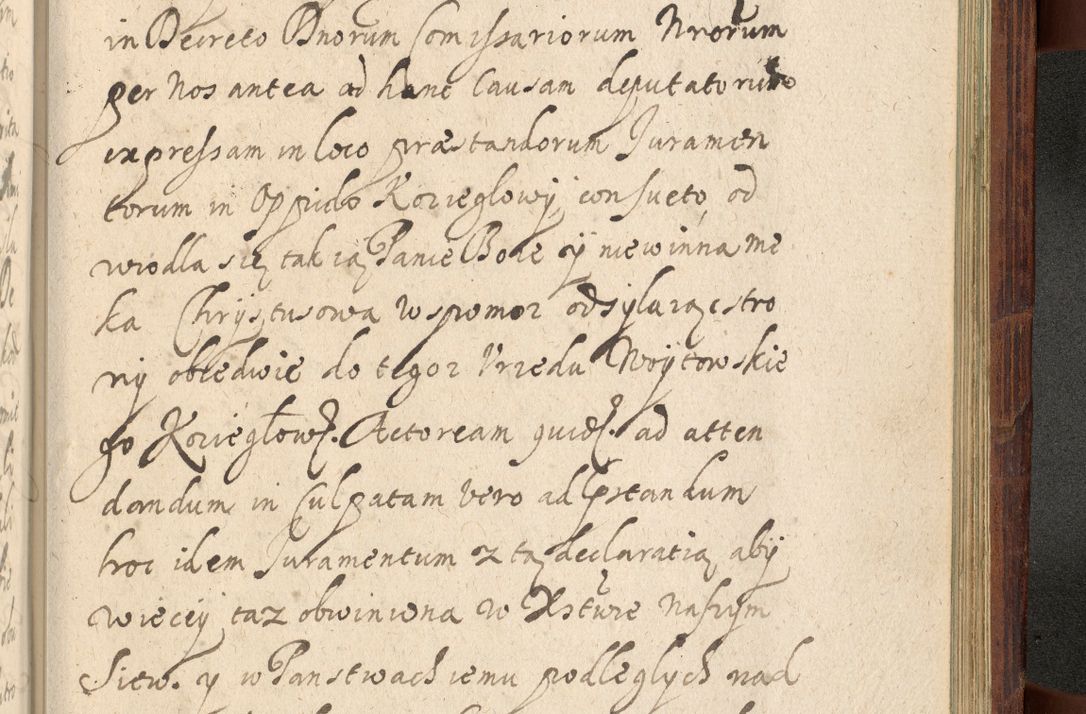 in Decreto Dnorum Comissariorum Nrorum
per Nos antea ad hanc Causam deputatorum
expressam in loco præstandorum Juramen
torum in Oppido Kozieglowy consueto, od
wiodla się tak ią Panie Boze y niewinna me
ka Chrystusowa wspomoz odsylaiąc stro
ny obiedwie do tegoz Vrzedu Woytowskie
go Kozieglow. Actoream quid. ad atten
dandum inculpatam vero ad Pstandum
hoc idem Juramentum z tą declaratią aby
więcey taz obwiniona w Xstwie naszym
Siew. y w Panstwach iemu podleglych nad